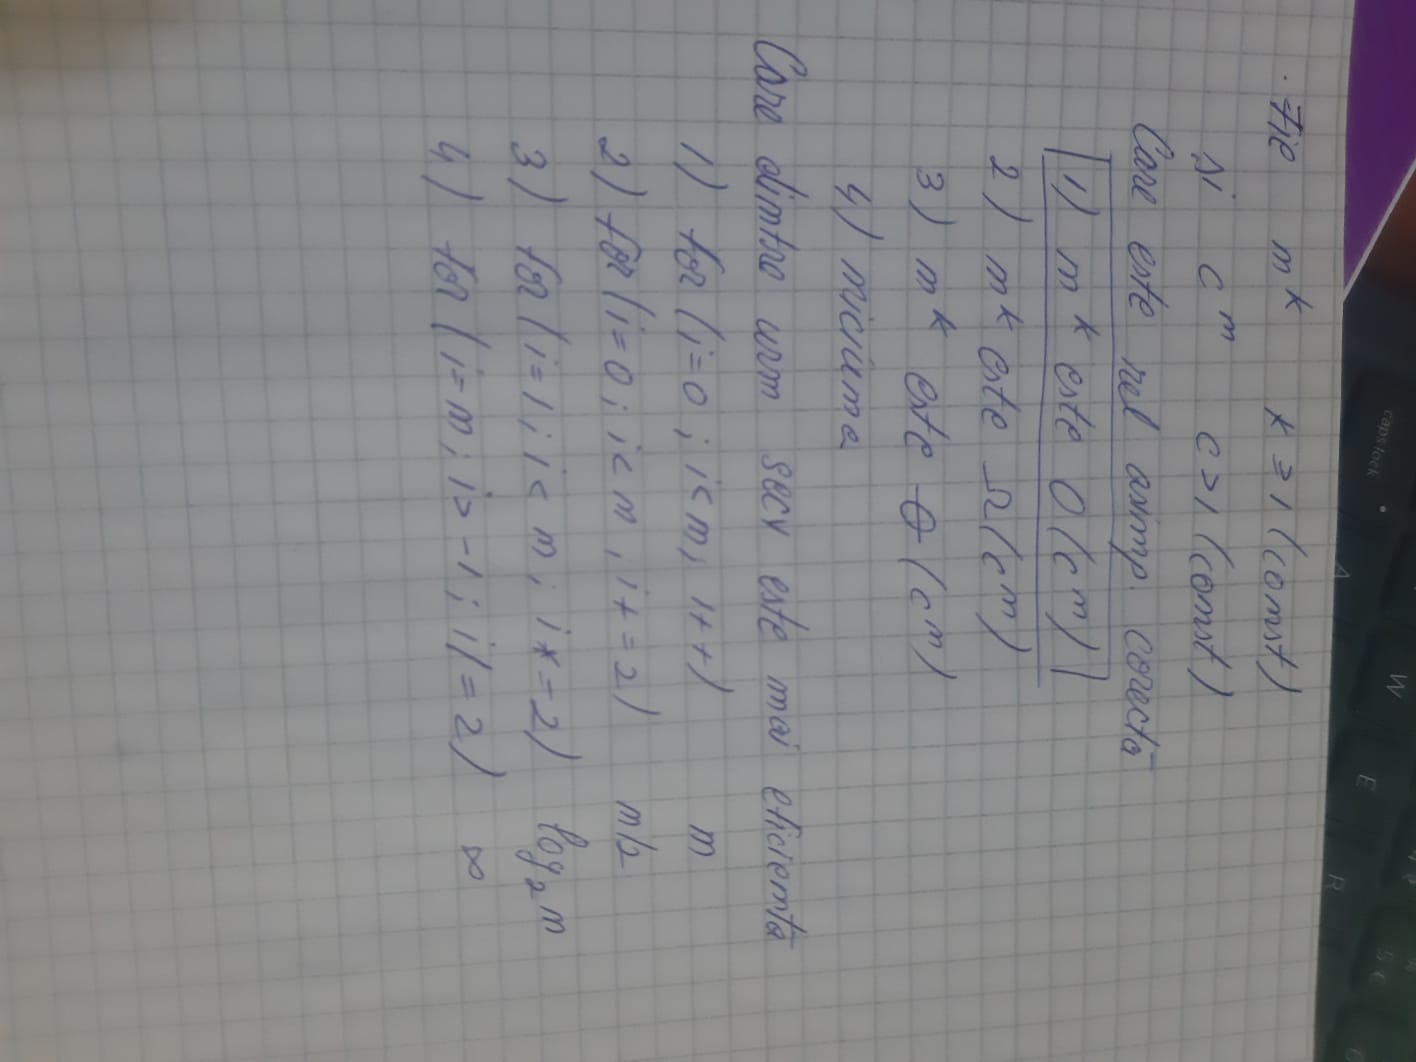 caps lock
W
E
R
A
5 €
Fie n^k k ≥ 1 (const)
si c^n c > 1 (const)
Care este rel asimp. corectă
1) n^k este O(c^n)
2) n^k este Ω(c^n)
3) n^k este Θ(c^n)
4) niciuna
Care dintre urm secv este mai eficientă
1) for (i=0; i<n; i++) n
2) for (i=0; i<n, i+=2) n/2
3) for (i=1; i<n; i*=2) log₂n
4) for (i=n; i>-1; i/=2) ∞